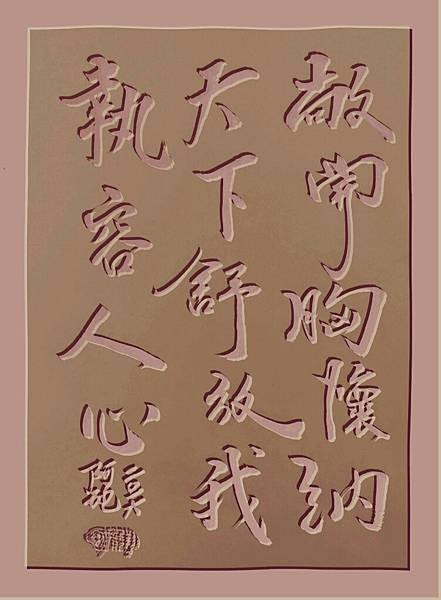 敞開胸懷納
天下舒放我
執容人心